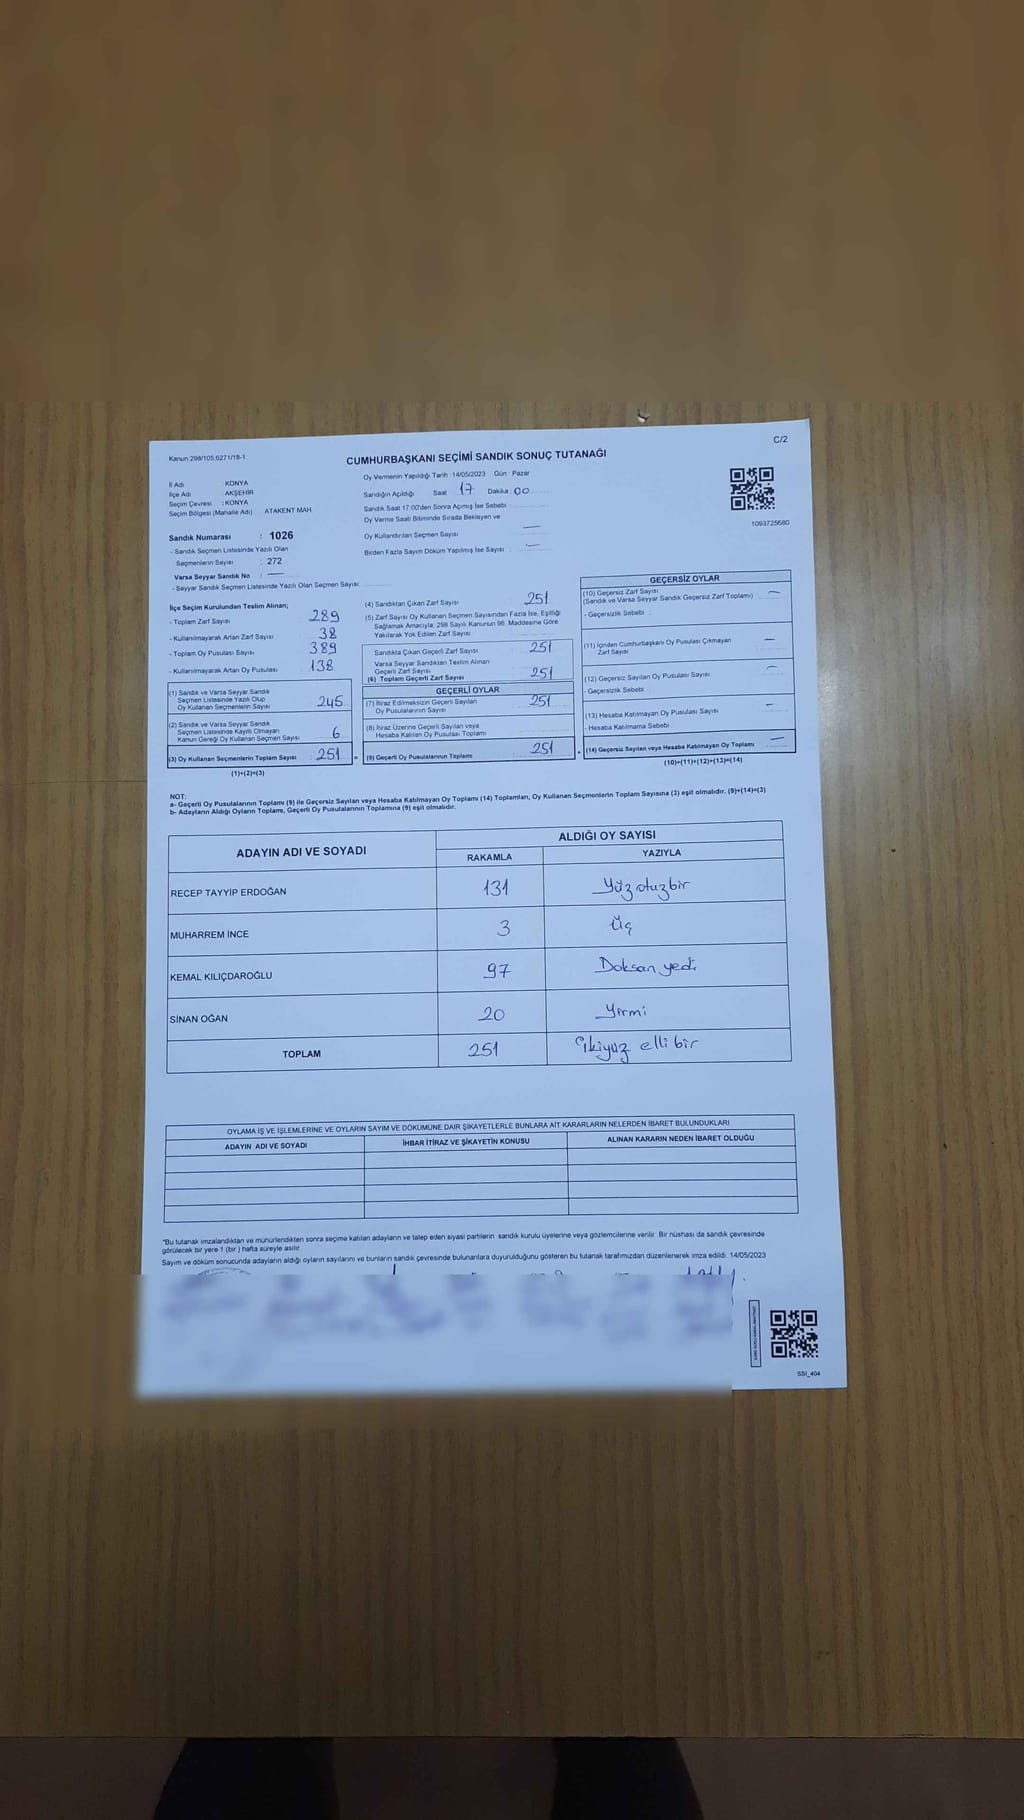 C/2
Kanun 298/105;6271/18-1
CUMHURBAŞKANI SEÇİMİ SANDIK SONUÇ TUTANAĞI
İl Adı : KONYA
İlçe Adı : AKŞEHİR
Seçim Çevresi : KONYA
Seçim Bölgesi (Mahalle Adı) ATAKENT MAH
Oy Vermenin Yapıldığı Tarih :14/05/2023 Gün : Pazar
Sandığın Açıldığı Saat 17 Dakika 00
Sandık Saat 17:00'den Sonra Açımış İse Sebebi
Oy Verme Saati Bitiminde Sırada Bekleyen ve
Oy Kullandırılan Seçmen Sayısı —
Birden Fazla Sayım Döküm Yapılmış İse Sayısı : —
1093725680
Sandık Numarası : 1026
- Sandık Seçmen Listesinde Yazılı Olan
Seçmenlerin Sayısı : 272
Varsa Seyyar Sandık No : —
- Seyyar Sandık Seçmen Listesinde Yazılı Olan Seçmen Sayısı
İlçe Seçim Kurulundan Teslim Alınan;
- Toplam Zarf Sayısı 289
- Kullanılmayarak Artan Zarf Sayısı 38
- Toplam Oy Pusulası Sayısı 389
- Kullanılmayarak Artan Oy Pusulası 138
(1) Sandık ve Varsa Seyyar Sandık
Seçmen Listesinde Yazılı Olup
Oy Kullanan Seçmenlerin Sayısı 245
(2) Sandık ve Varsa Seyyar Sandık
Seçmen Listesinde Kayıtlı Olmayan
Kanun Gereği Oy Kullanan Seçmen Sayısı 6
(3) Oy Kullanan Seçmenlerin Toplam Sayısı 251 =
(1)+(2)=(3)
(4) Sandıktan Çıkan Zarf Sayısı 251
(5) Zarf Sayısı Oy Kullanan Seçmen Sayısından Fazla İse, Eşitliği
Sağlamak Amacıyla; 298 Sayılı Kanunun 98. Maddesine Göre
Yakılarak Yok Edilen Zarf Sayısı
Sandıkta Çıkan Geçerli Zarf Sayısı 251
Varsa Seyyar Sandıktan Teslim Alınan
Geçerli Zarf Sayısı
(6) Toplam Geçerli Zarf Sayısı 251
GEÇERLİ OYLAR
(7) İtiraz Edilmeksizin Geçerli Sayılan 251
Oy Pusulalarının Sayısı
(8) İtiraz Üzerine Geçerli Sayılan veya
Hesaba Katılan Oy Pusulası Toplamı
(9) Geçerli Oy Pusulalarının Toplamı 251 +
GEÇERSİZ OYLAR
(10) Geçersiz Zarf Sayısı —
(Sandık ve Varsa Seyyar Sandık Geçersiz Zarf Toplamı)
- Geçersizlik Sebebi :
(11) İçinden Cumhurbaşkanı Oy Pusulası Çıkmayan —
Zarf Sayısı
(12) Geçersiz Sayılan Oy Pusulası Sayısı —
- Geçersizlik Sebebi
(13) Hesaba Katılmayan Oy Pusulası Sayısı —
- Hesaba Katılmama Sebebi
(14) Geçersiz Sayılan veya Hesaba Katılmayan Oy Toplamı —
(10)+(11)+(12)+(13)=(14)
NOT:
a- Geçerli Oy Pusulalarının Toplamı (9) ile Geçersiz Sayılan veya Hesaba Katılmayan Oy Toplamı (14) Toplamları, Oy Kullanan Seçmenlerin Toplam Sayısına (3) eşit olmalıdır. (9)+(14)=(3)
b- Adayların Aldığı Oyların Toplamı, Geçerli Oy Pusulalarının Toplamına (9) eşit olmalıdır.
ADAYIN ADI VE SOYADI
ALDIĞI OY SAYISI
RAKAMLA YAZIYLA
RECEP TAYYİP ERDOĞAN 131 Yüzotuzbir
MUHARREM İNCE 3 Üç
KEMAL KILIÇDAROĞLU 97 Doksan yedi
SİNAN OĞAN 20 Yirmi
TOPLAM 251 ikiyüz elli bir
OYLAMA İŞ VE İŞLEMLERİNE VE OYLARIN SAYIM VE DÖKÜMÜNE DAİR ŞİKAYETLERLE BUNLARA AİT KARARLARIN NELERDEN İBARET BULUNDUKLARI
ADAYIN ADI VE SOYADI İHBAR İTİRAZ VE ŞİKAYETİN KONUSU ALINAN KARARIN NEDEN İBARET OLDUĞU
*Bu tutanak imzalandıktan ve mühürlendikten sonra seçime katılan adayların ve talep eden siyasi partilerin sandık kurulu üyelerine veya gözlemcilerine verilir. Bir nüshası da sandık çevresinde
görülecek bir yere 1 (bir ) hafta süreyle asılır.
Sayım ve döküm sonucunda adayların aldığı oyların sayılarını ve bunların sandık çevresinde bulunanlara duyurulduğunu gösteren bu tutanak tarafımızdan düzenlenerek imza edildi. 14/05/2023
SSI_404